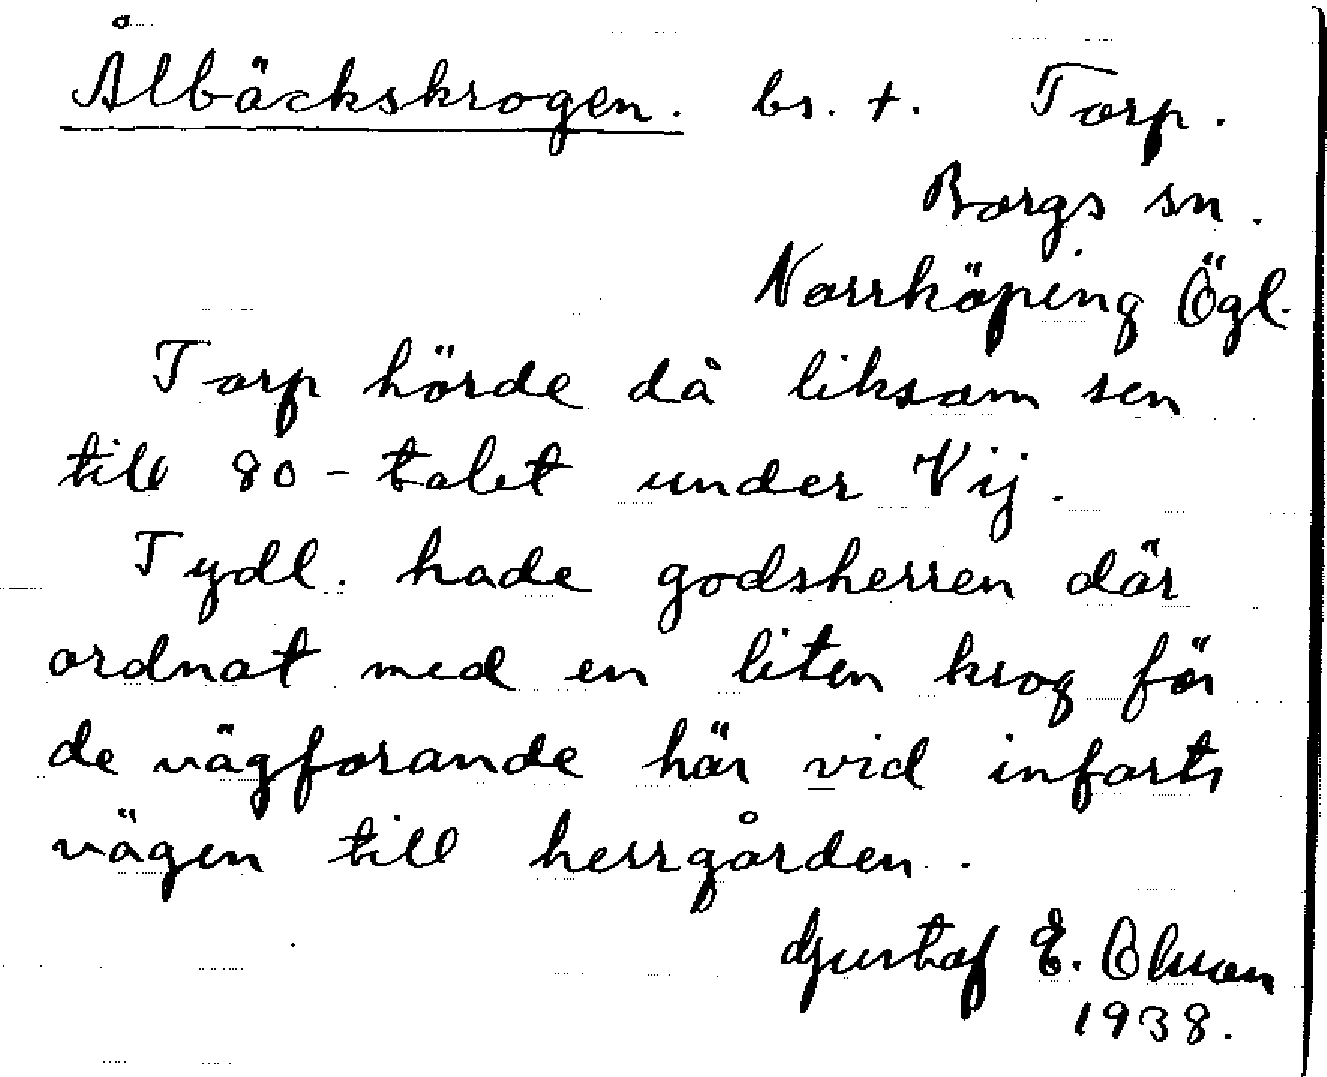 Ålbäckskrogen. br. t. Torp.
Borgs sn.
Norrköping Ögl.
Torp hörde då liksom sen
till 80-talet under Vij.
Tydl. hade godsherren där
ordnat med en liten krog för
de vägforande här vid infarts
vägen till herrgården.
Gustaf E. Olsson
1938.